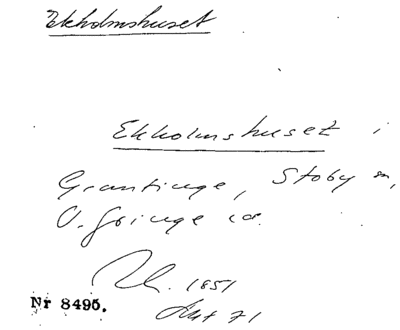 Ekholmshuset
Ekholmshuset i
Grantinge, Stoby sn,
V. Göinge hd.
1851
Nr 8495.